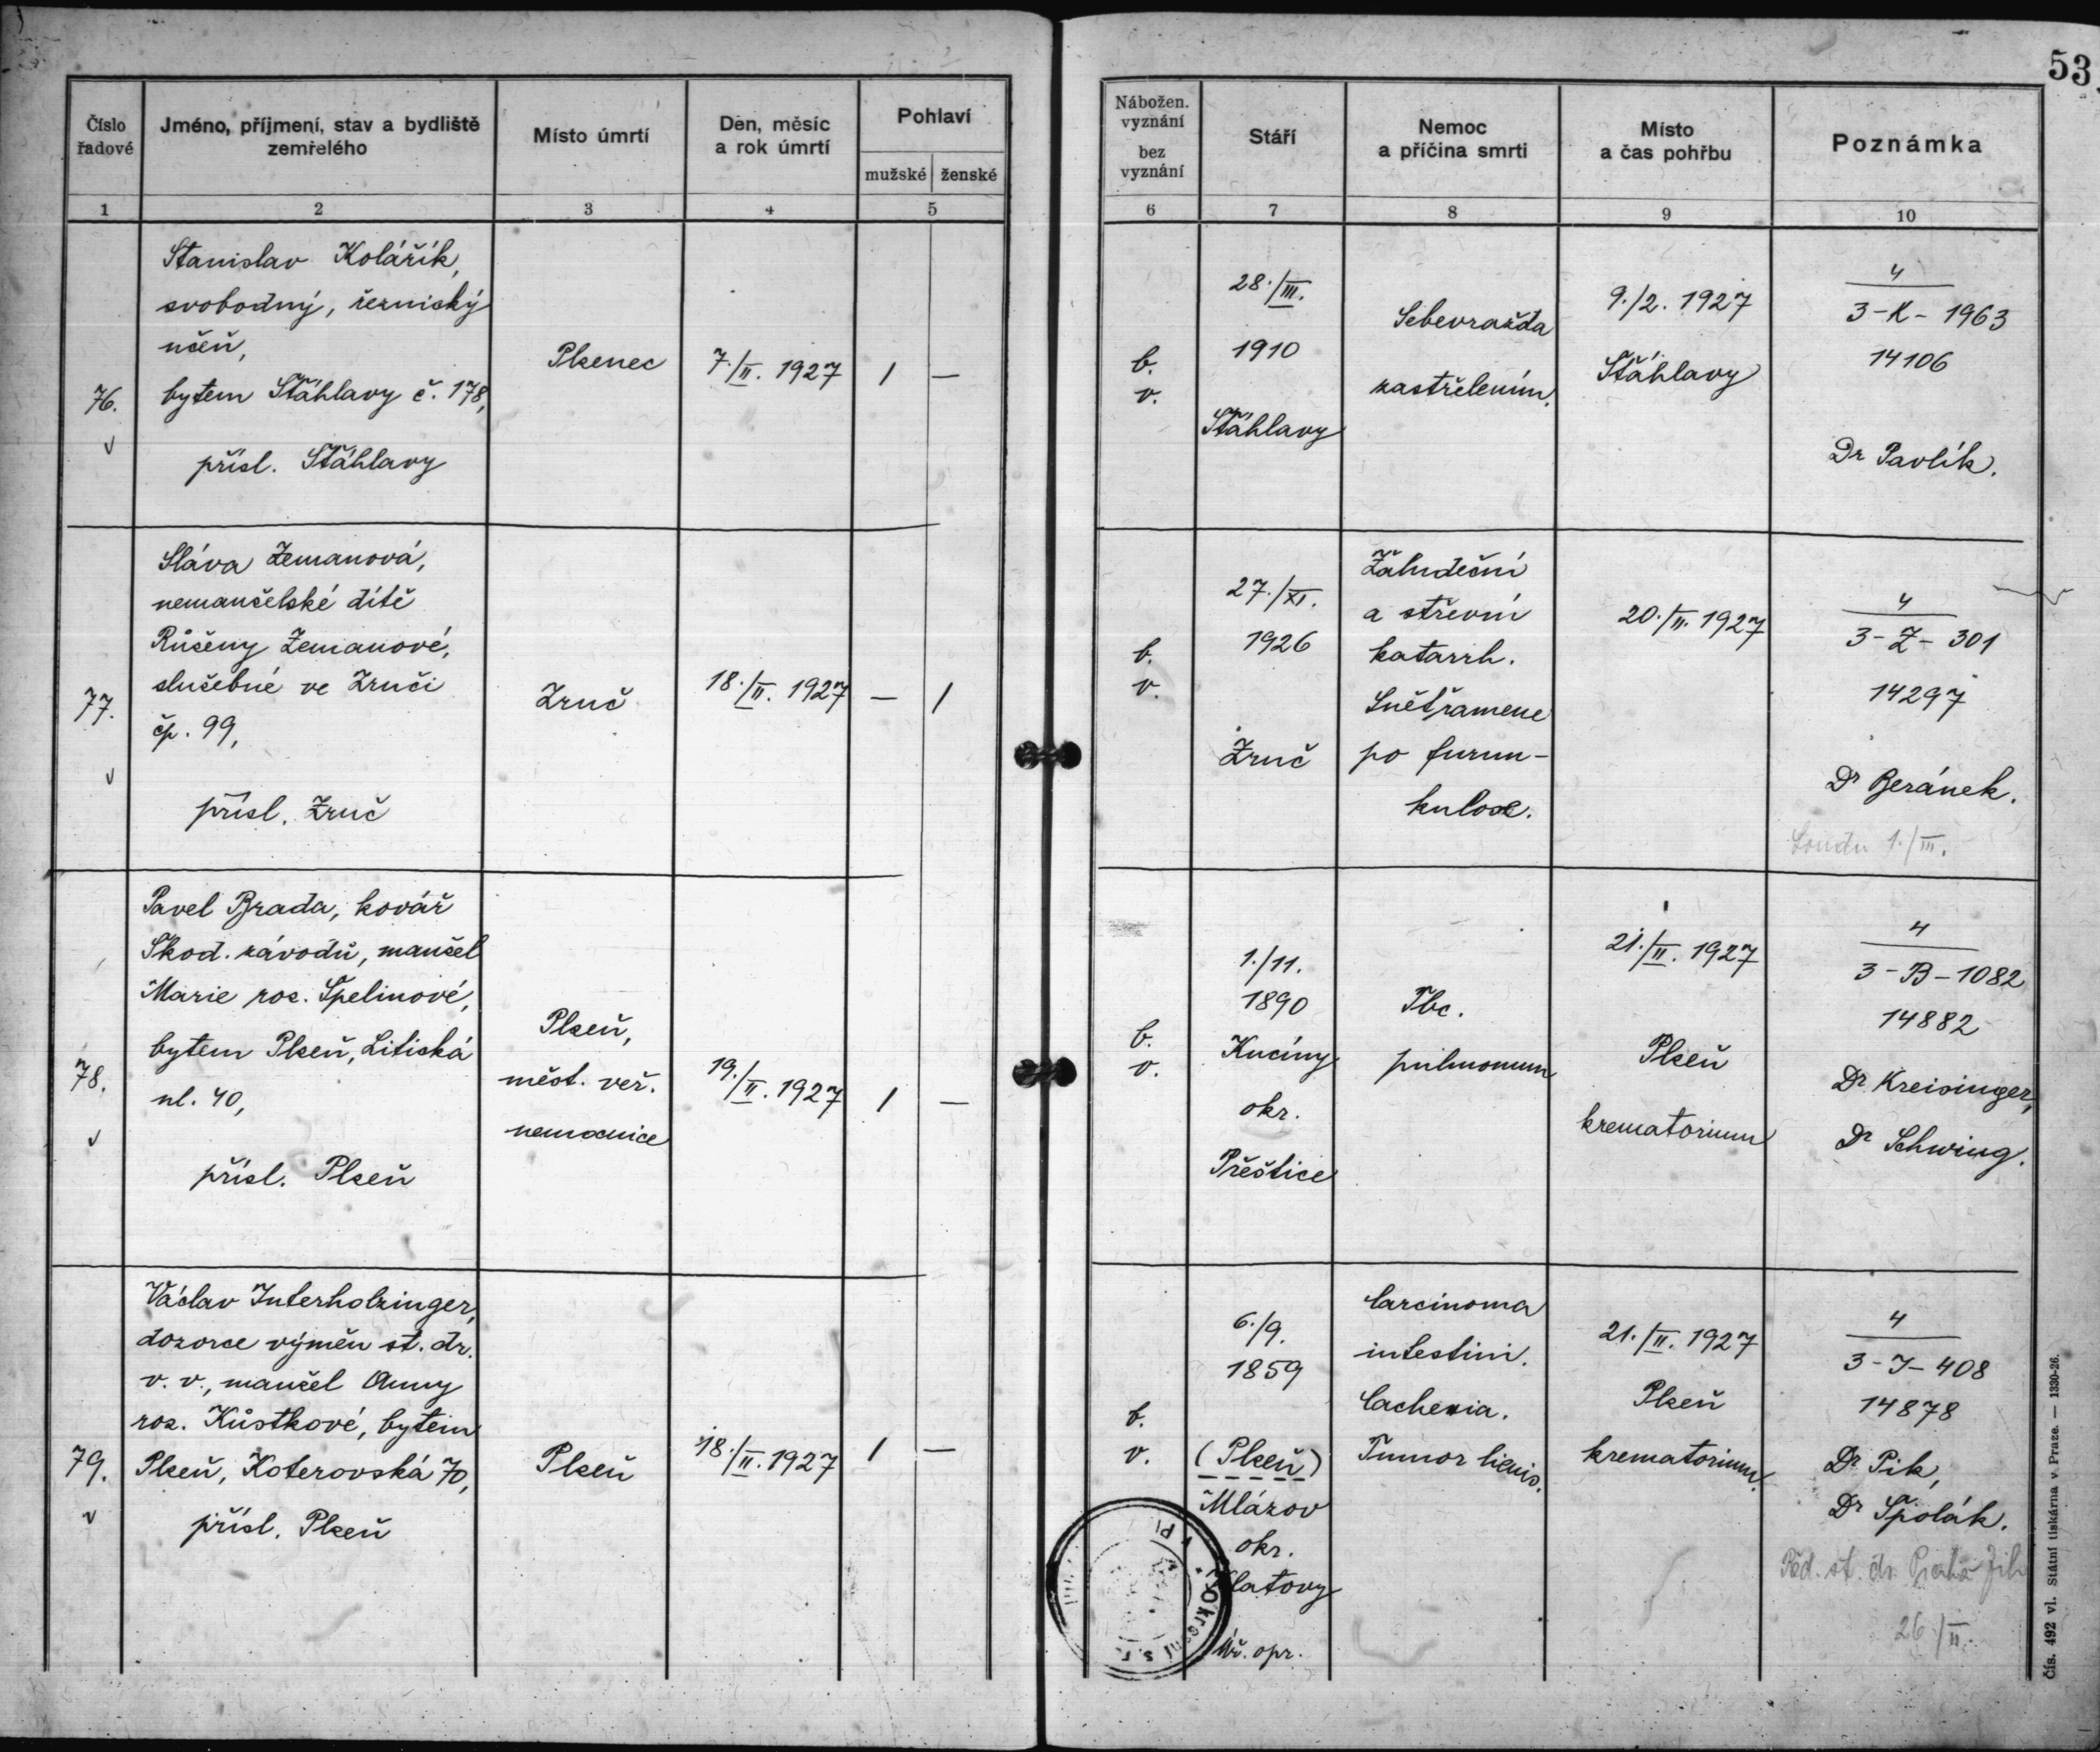 53
Číslo
řadové
Jméno, příjmení, stav a bydliště
zemřelého
Místo úmrtí
Den, měsíc
a rok úmrtí
Pohlaví
mužské
ženské
Nábožen.
vyznání
bez
vyznání
Stáří
Nemoc
a příčina smrti
Místo
a čas pohřbu
Poznámka
1
2
3
4
5
6
7
8
9
10
76.
Stanislav Kolářík,
svobodný, řeznický
učeň,
bytem Šťáhlavy č. 178,
přísl. Šťáhlavy
Plzenec
7./II. 1927
1
—
b.
v.
28./III.
1910
Šťáhlavy
Sebevražda
zastřelením.
9./2. 1927
Šťáhlavy
4
3-K-1963
14106
Dr Pavlík.
77.
Sláva Zemanová,
nemanželské dítě
Růženy Zemanové,
služebné ve Zruči
čp. 99,
přísl. Zruč
Zruč
18./II. 1927
—
1
b.
v.
27./XI.
1926
Zruč
Žaludeční
a střevní
katarrh.
Sněť ramene
po furun-
kulose.
20./II. 1927
4
3-Z-301
14297
Dr Beránek.
Soudu 1./III.
78.
Pavel Brada, kovář
Škod. závodů, manžel
Marie roz. Špelinové,
bytem Plzeň, Litická
ul. 40,
přísl. Plzeň
Plzeň,
měst. veř.
nemocnice
19./II. 1927
1
—
b.
v.
1./11.
1890
Kucíny
okr.
Přeštice
Tbc.
pulmonum
21./II. 1927
Plzeň
krematorium
4
3-B-1082
14882
Dr Kreisinger,
Dr Schwing.
79.
Václav Interholzinger,
dozorce výměn st. dr.
v. v., manžel Anny
roz. Kůstkové, bytem
Plzeň, Koterovská 70,
přísl. Plzeň
Plzeň
18./II. 1927
1
—
b.
v.
6./9.
1859
(Plzeň)
Mlázov
okr.
Klatovy
Úř. opr.
Carcinoma
intestini.
Cachexia.
Tumor lienis.
21./II. 1927
Plzeň
krematorium.
4
3-I-408
14878
Dr Pik,
Dr Špolák.
26/II.
Čís. 492 vl. Státní tiskárna v Praze. — 1330-26.